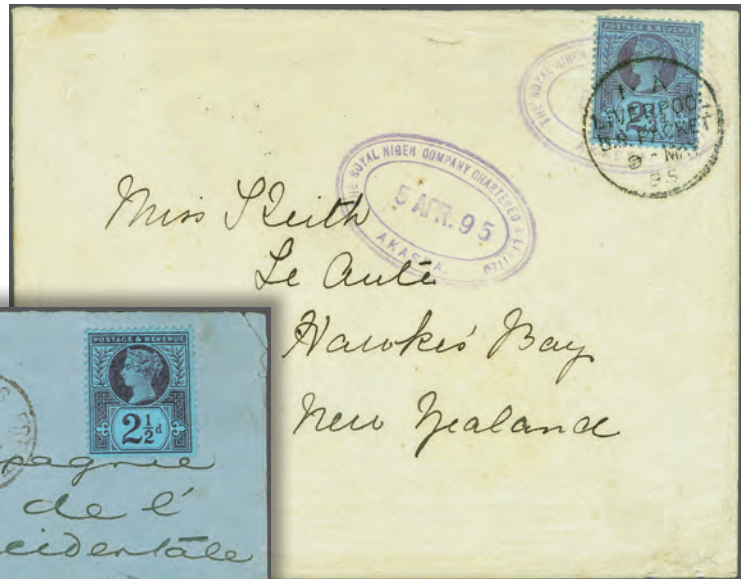 POSTAGE & REVENUE
THE ROYAL NIGER
LIVERPOOL
BR. PACKET
95
THE ROYAL NIGER COMPANY CHARTERED & LIMITED
5 APR. 95
AKASSA
Miss Keith
Te Aute
Hawkes Bay
New Zealand
POSTAGE & REVENUE
2½d
pagnie
de l'
cidentale